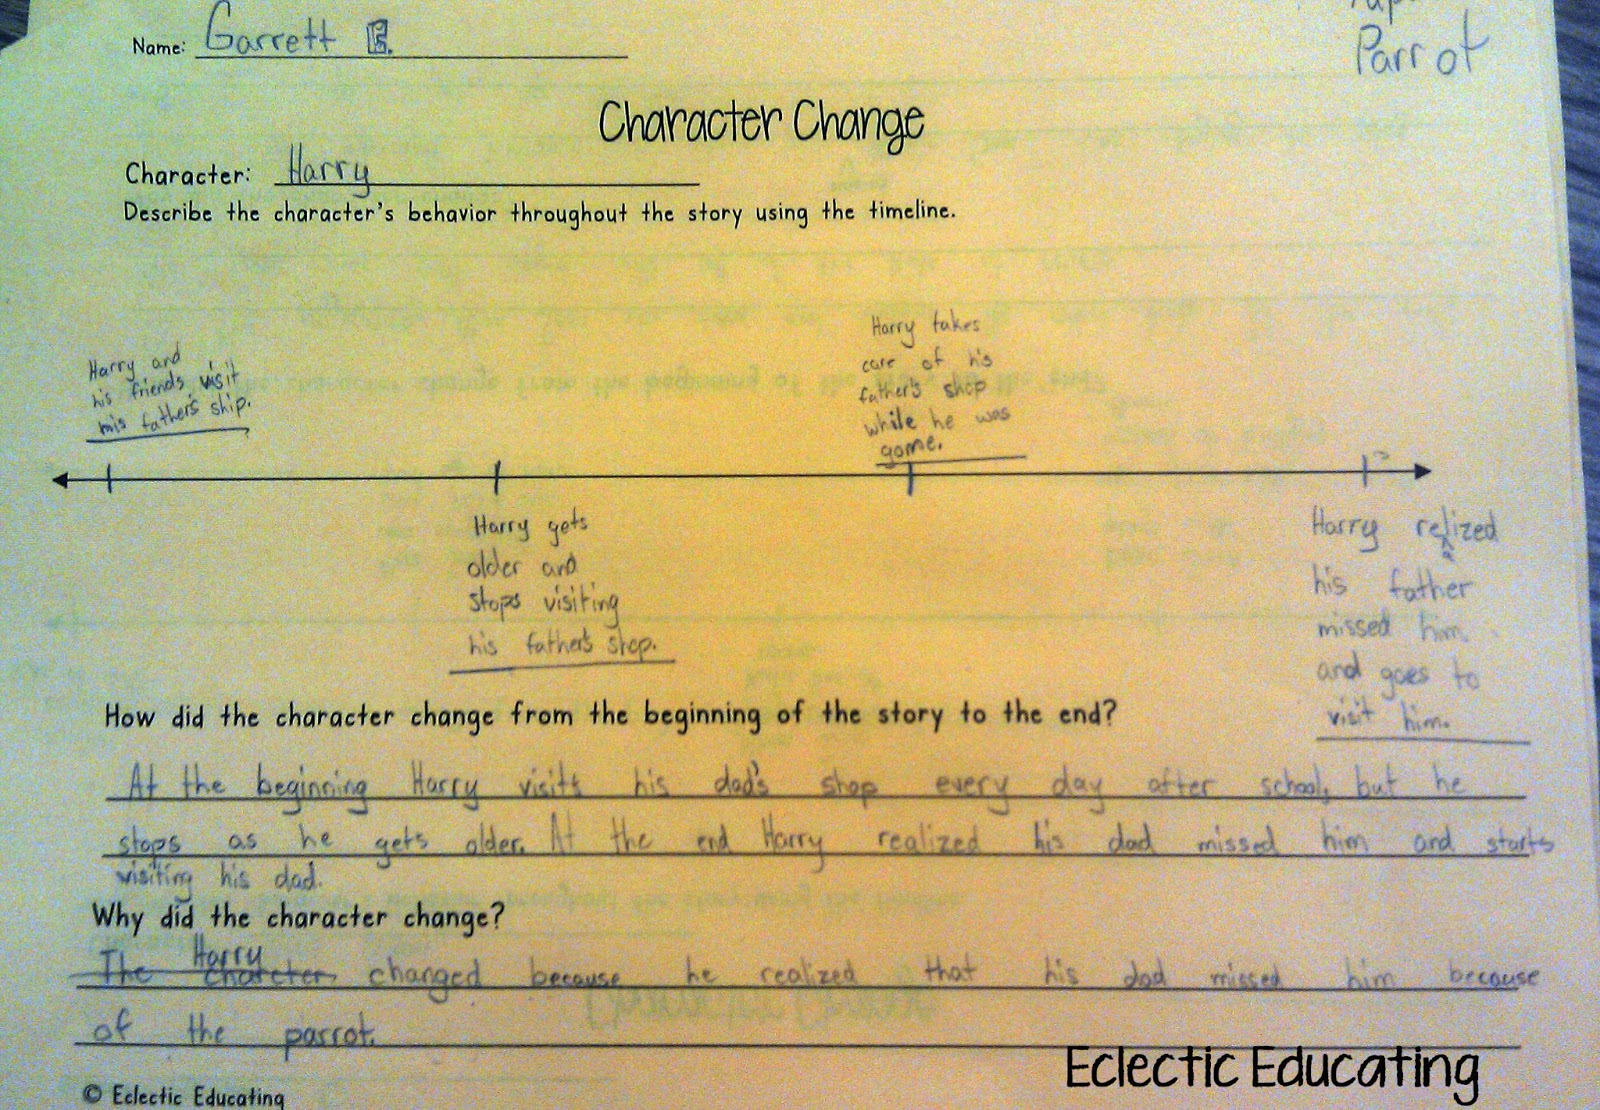 Name: Garrett E.
Parrot
Character Change
Character: Harry
Describe the character's behavior throughout the story using the timeline.
Harry and
his friends visit
his father's ship.
Harry takes
care of his
father's shop
while he was
gome.
Harry gets
older and
stops visiting
his father's shop.
Harry relized
a
his father
missed him
and goes to
visit him.
How did the character change from the beginning of the story to the end?
At the beginning Harry visits his dad's shop every day after school, but he
stops as he gets older. At the end Harry realized his dad missed him and starts
visiting his dad.
Why did the character change?
Harry
The charcter changed because he realized that his dad missed him because
of the parrot.
Eclectic Educating
© Eclectic Educating